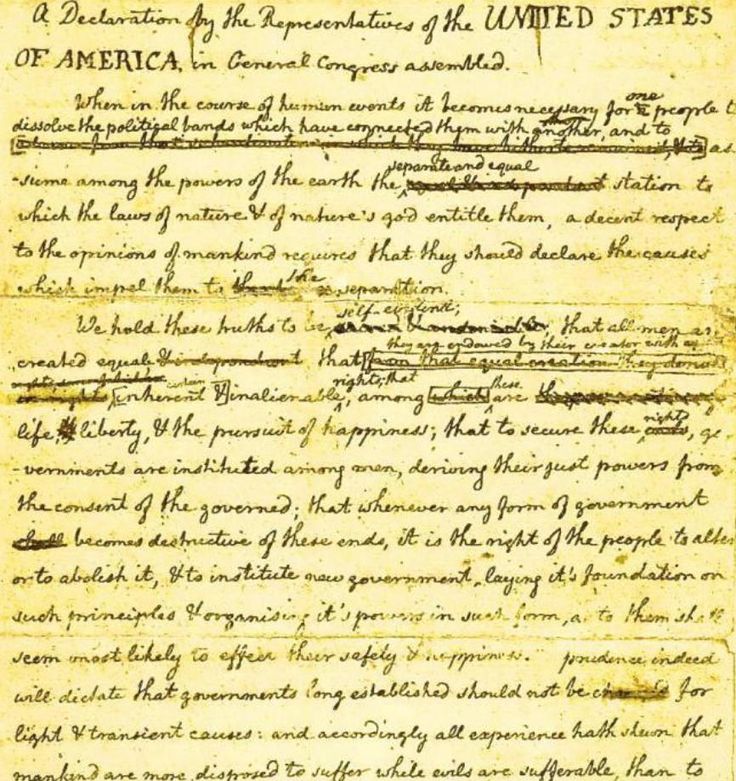 A Declaration by the Representatives of the UNITED STATES
OF AMERICA, in General Congress assembled.
one
When in the course of human events it becomes necessary for people t
dissolve the political bands which have connected them with another, and to
as
separate and equal
-sume among the powers of the earth the station to
which the laws of nature & of nature's god entitle them, a decent respect
to the opinions of mankind requires that they should declare the causes
the
which impel them to separation.
self-evident;
We hold these truths to be that all men ar
they are endowed by their creator with
created equal & independent that from that equal creation they
certain rights; that these
[inherent &] inalienable, among which are
rights
life liberty, & the pursuit of happiness; that to secure these ends, go
-vernments are instituted among men, deriving their just powers from
the consent of the governed; that whenever any form of government
shall becomes destructive of these ends, it is the right of the people to alter
or to abolish it, & to institute new government, laying it's foundation on
such principles & organising it's powers in such form, as to them shall
seem most likely to effect their safety & happiness. prudence indeed
will dictate that governments long established should not be changed for
light & transient causes: and accordingly all experience hath shewn that
mankind are more disposed to suffer while evils are sufferable, than to